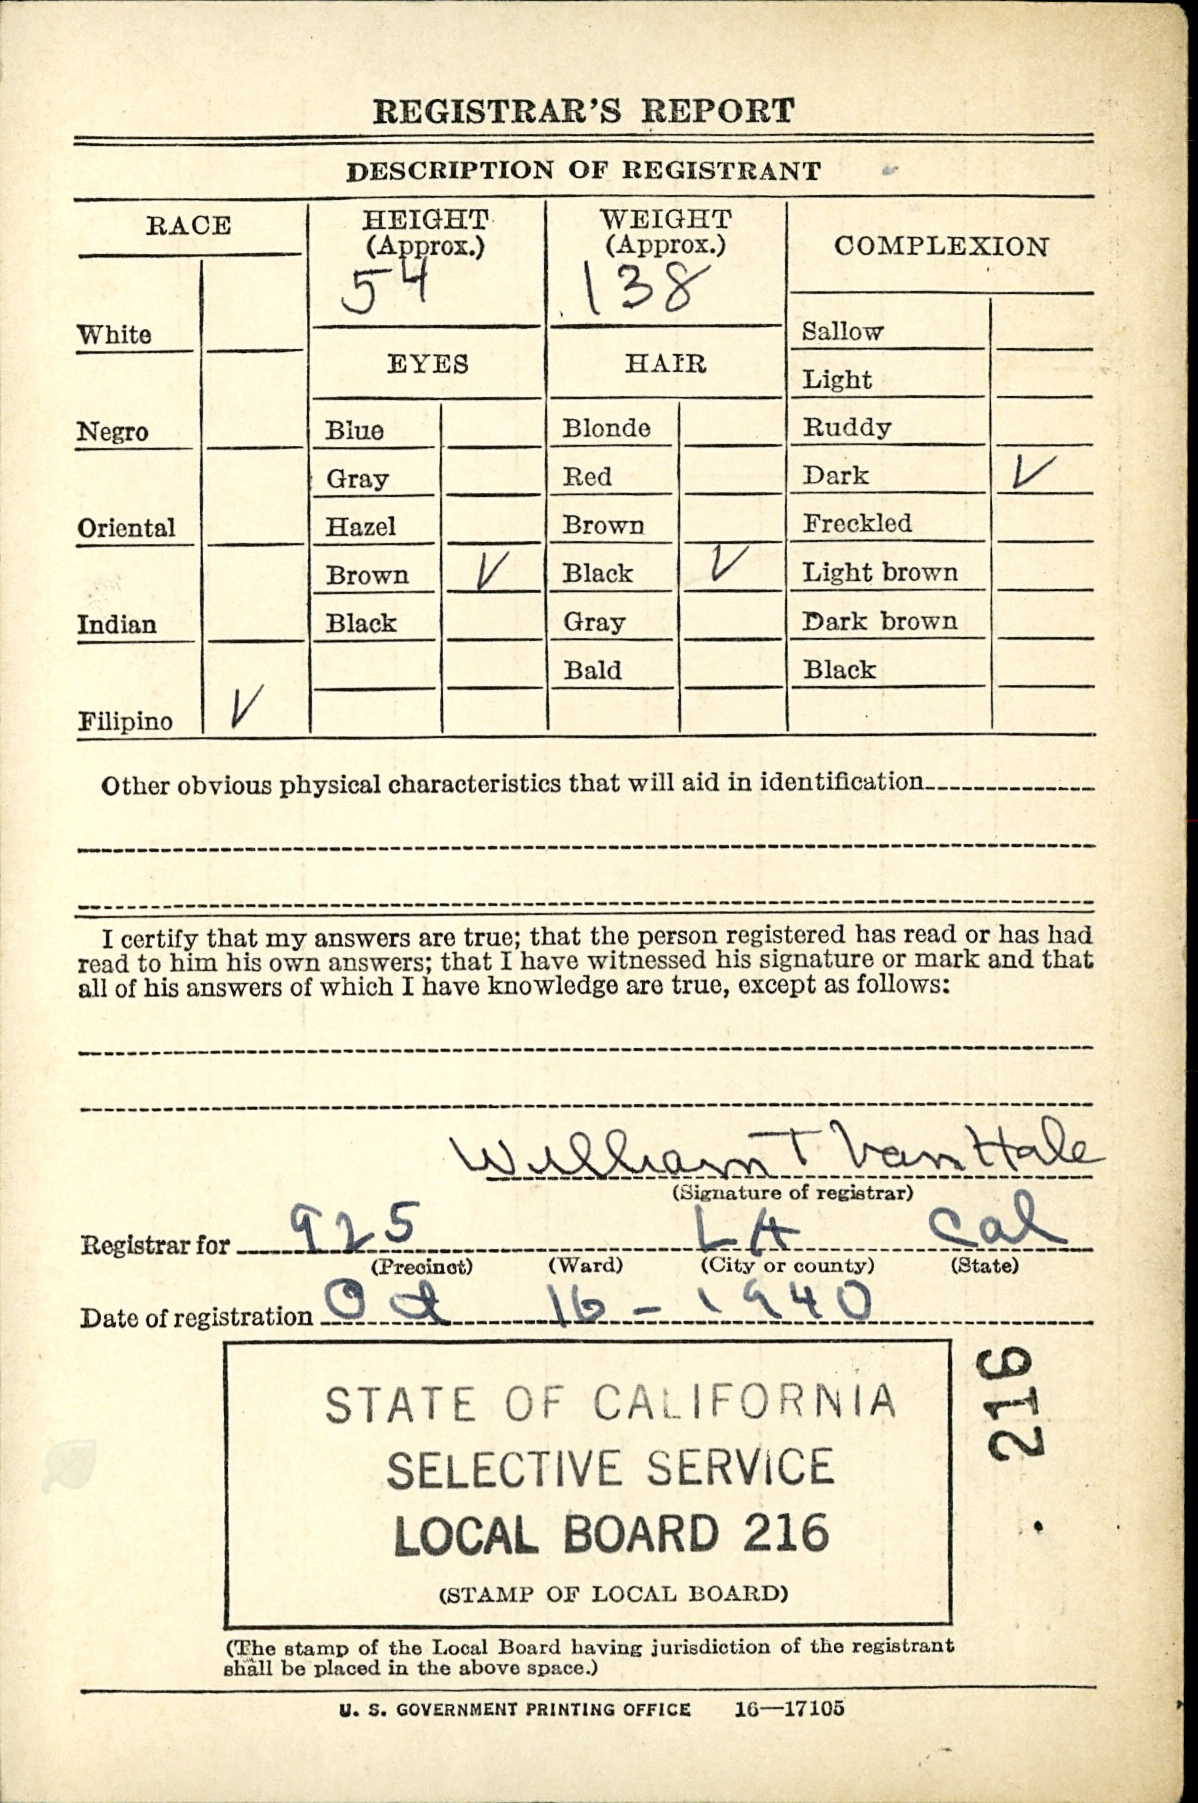 REGISTRAR'S REPORT
DESCRIPTION OF REGISTRANT
RACE
HEIGHT (Approx.)
WEIGHT (Approx.)
COMPLEXION
54
138
White
Sallow
EYES
HAIR
Light
Negro
Blue
Blonde
Ruddy
Gray
Red
Dark V
Oriental
Hazel
Brown
Freckled
Brown V
Black V
Light brown
Indian
Black
Gray
Dark brown
Bald
Black
Filipino V
Other obvious physical characteristics that will aid in identification
I certify that my answers are true; that the person registered has read or has had
read to him his own answers; that I have witnessed his signature or mark and that
all of his answers of which I have knowledge are true, except as follows:
William T Van Hale
(Signature of registrar)
Registrar for 925 LA Cal
(Precinct) (Ward) (City or county) (State)
Date of registration Oct 16 - 1940
STATE OF CALIFORNIA
SELECTIVE SERVICE
LOCAL BOARD 216
(STAMP OF LOCAL BOARD)
216
(The stamp of the Local Board having jurisdiction of the registrant
shall be placed in the above space.)
U. S. GOVERNMENT PRINTING OFFICE 16—17105